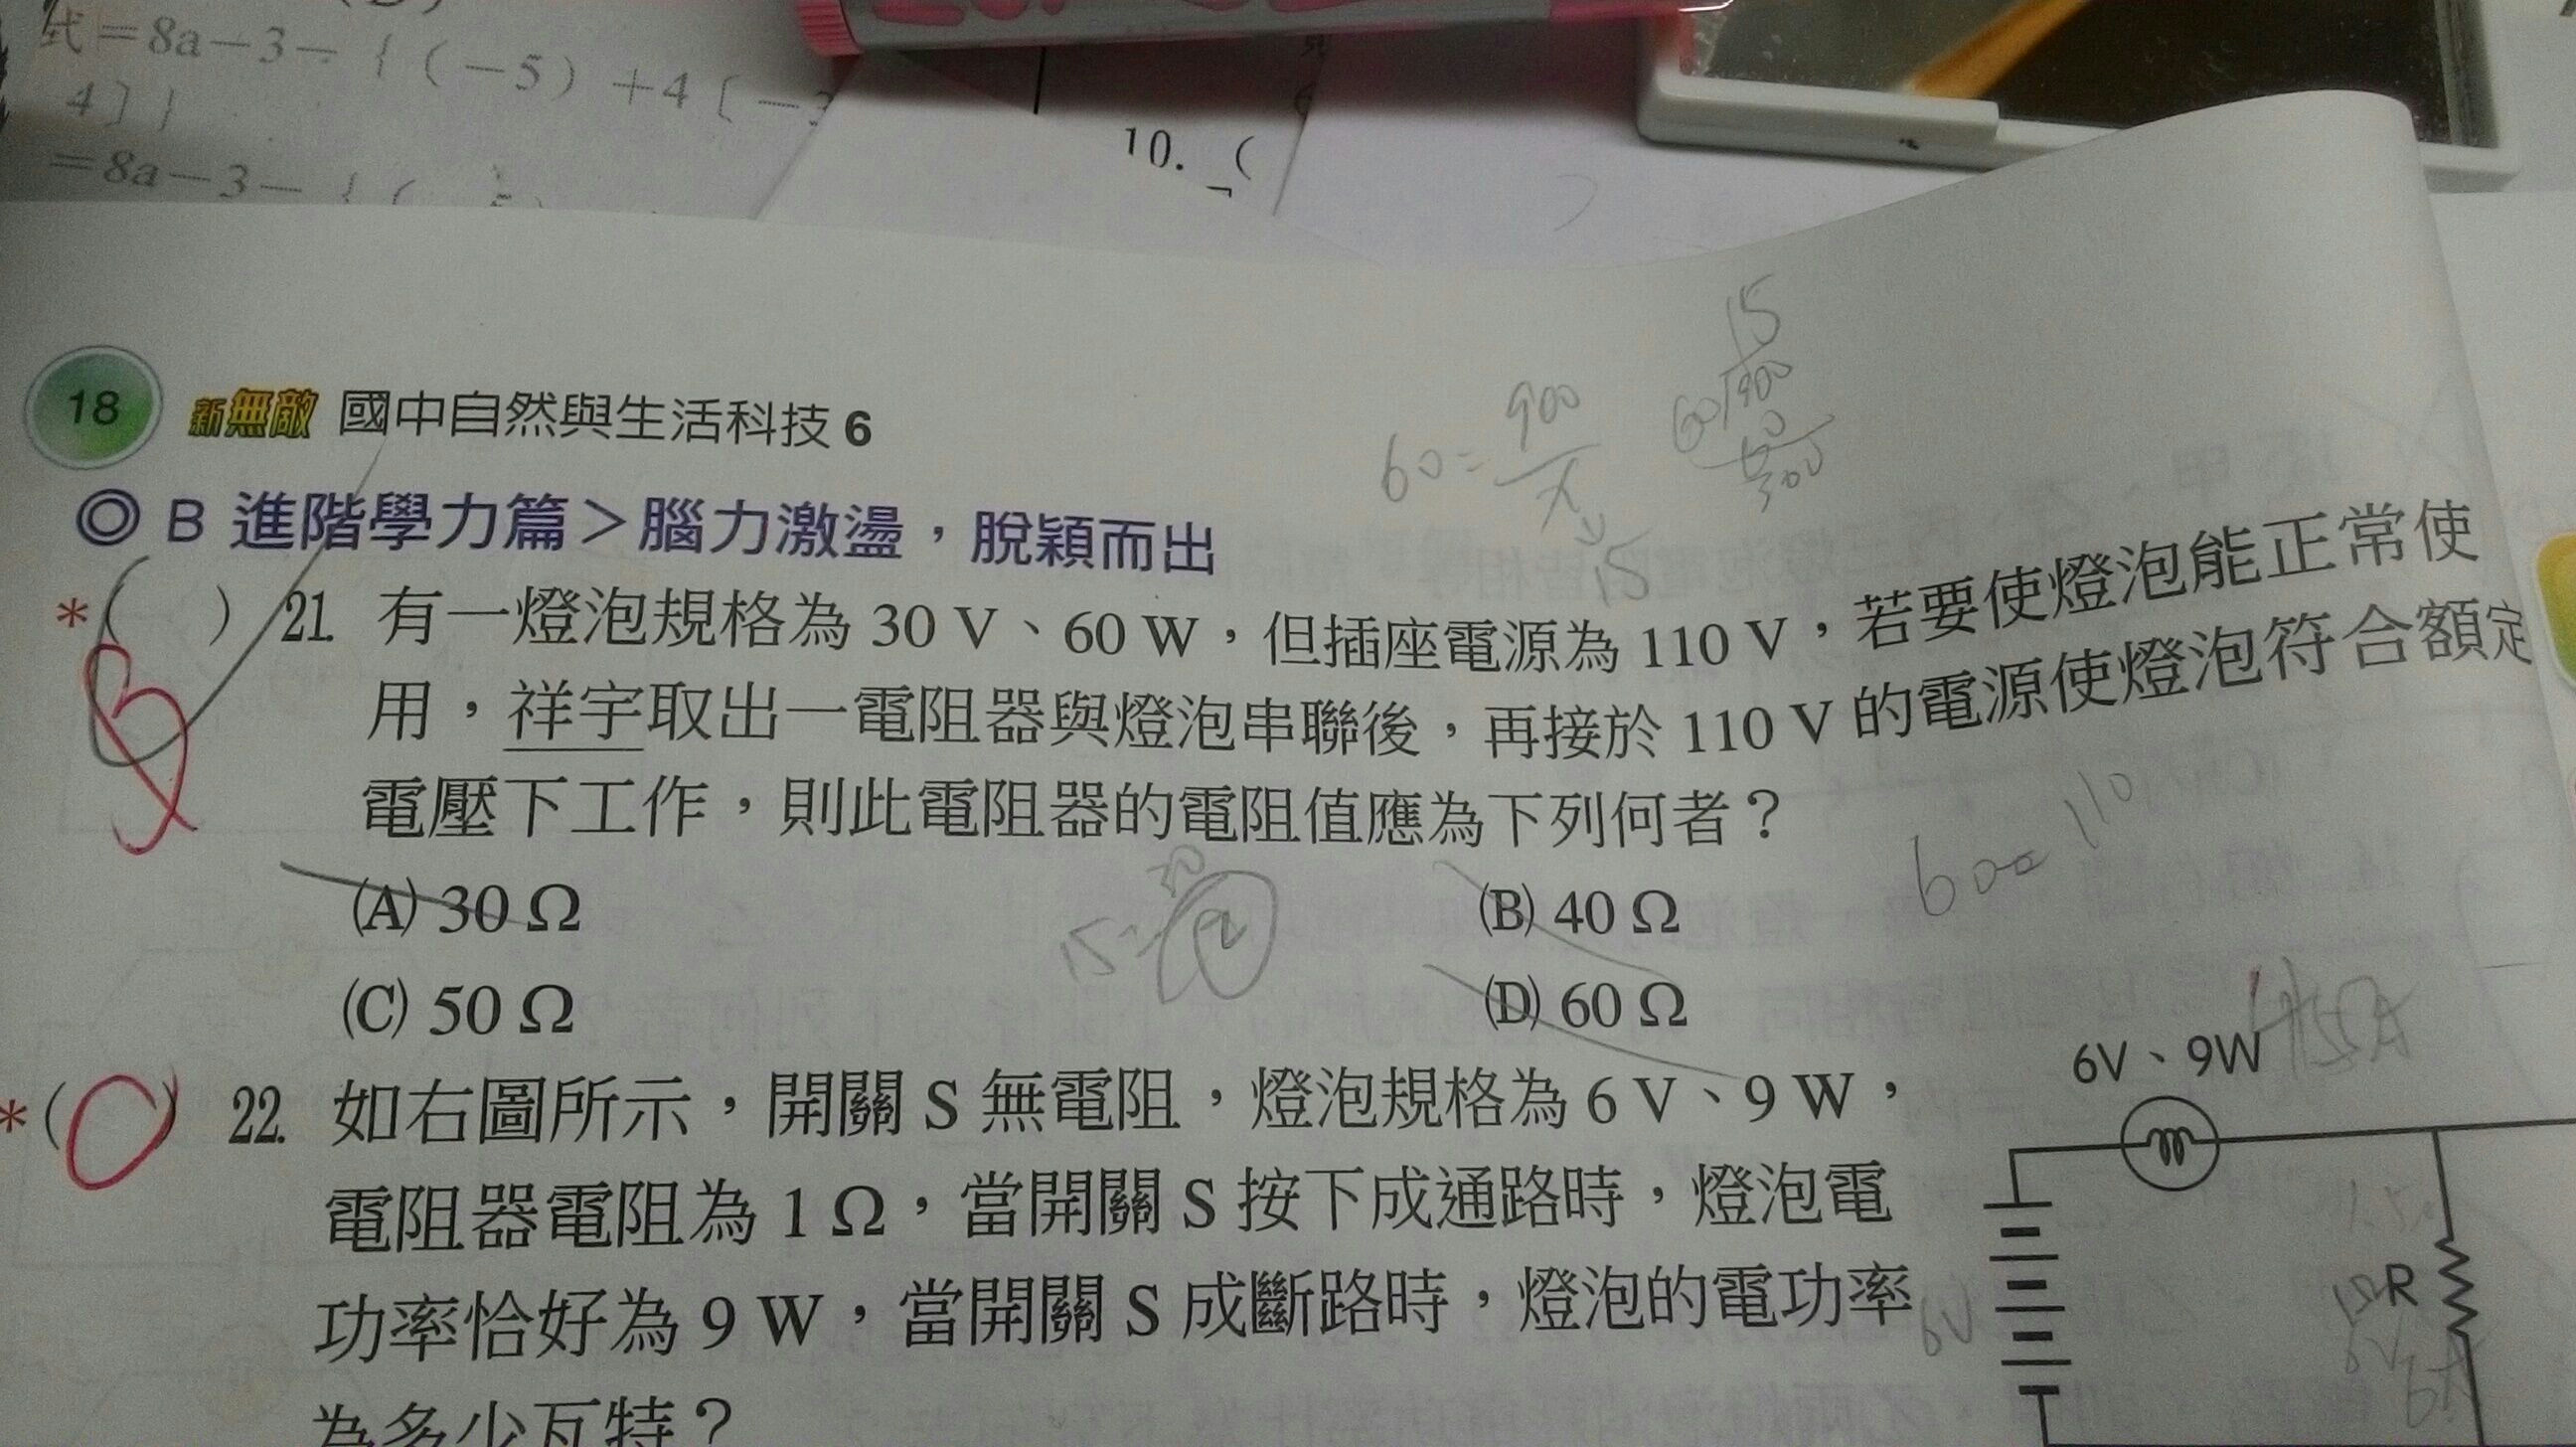 式=8a-3-{(-5)+4[-3
4]}
=8a-3-{(-5)
10. (
18 新無敵 國中自然與生活科技 6
15
60=900/x
60/900
60
300
15
◎ B 進階學力篇>腦力激盪,脫穎而出
*( ) 21. 有一燈泡規格為 30 V、60 W,但插座電源為 110 V,若要使燈泡能正常使
用,祥宇取出一電阻器與燈泡串聯後,再接於 110 V 的電源使燈泡符合額定
電壓下工作,則此電阻器的電阻值應為下列何者?
110
(A) 30 Ω (B) 40 Ω
15=30/2
(C) 50 Ω (D) 60 Ω
*( ) 22. 如右圖所示,開關 S 無電阻,燈泡規格為 6 V、9 W,
電阻器電阻為 1 Ω,當開關 S 按下成通路時,燈泡電
功率恰好為 9 W,當開關 S 成斷路時,燈泡的電功率
為多少瓦特?
6V、9W
R
6V
6A